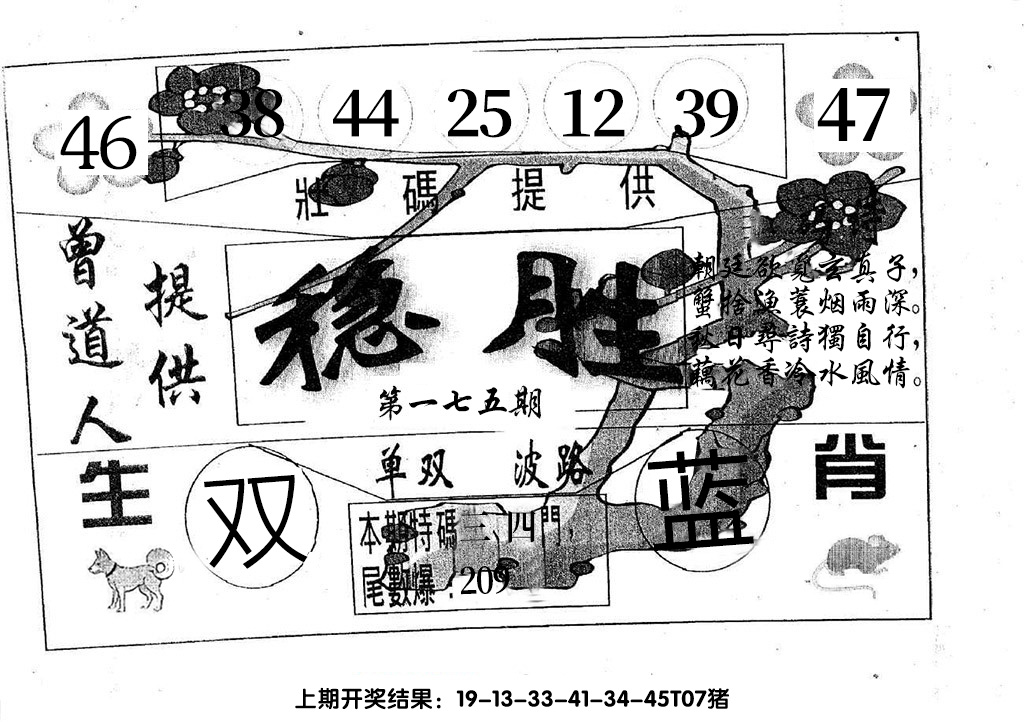 46 38 44 25 12 39 47
壯碼提供
曾道人
提供
稳胜
第一七五期
特
朝廷欲覓玄真子,
蟹捨漁蓑烟雨深。
秋日尋詩獨自行,
藕花香冷水風情。
单双 波路
生肖
双
蓝
本期特碼三、四門,
尾數爆:209
上期开奖结果：19-13-33-41-34-45T07猪